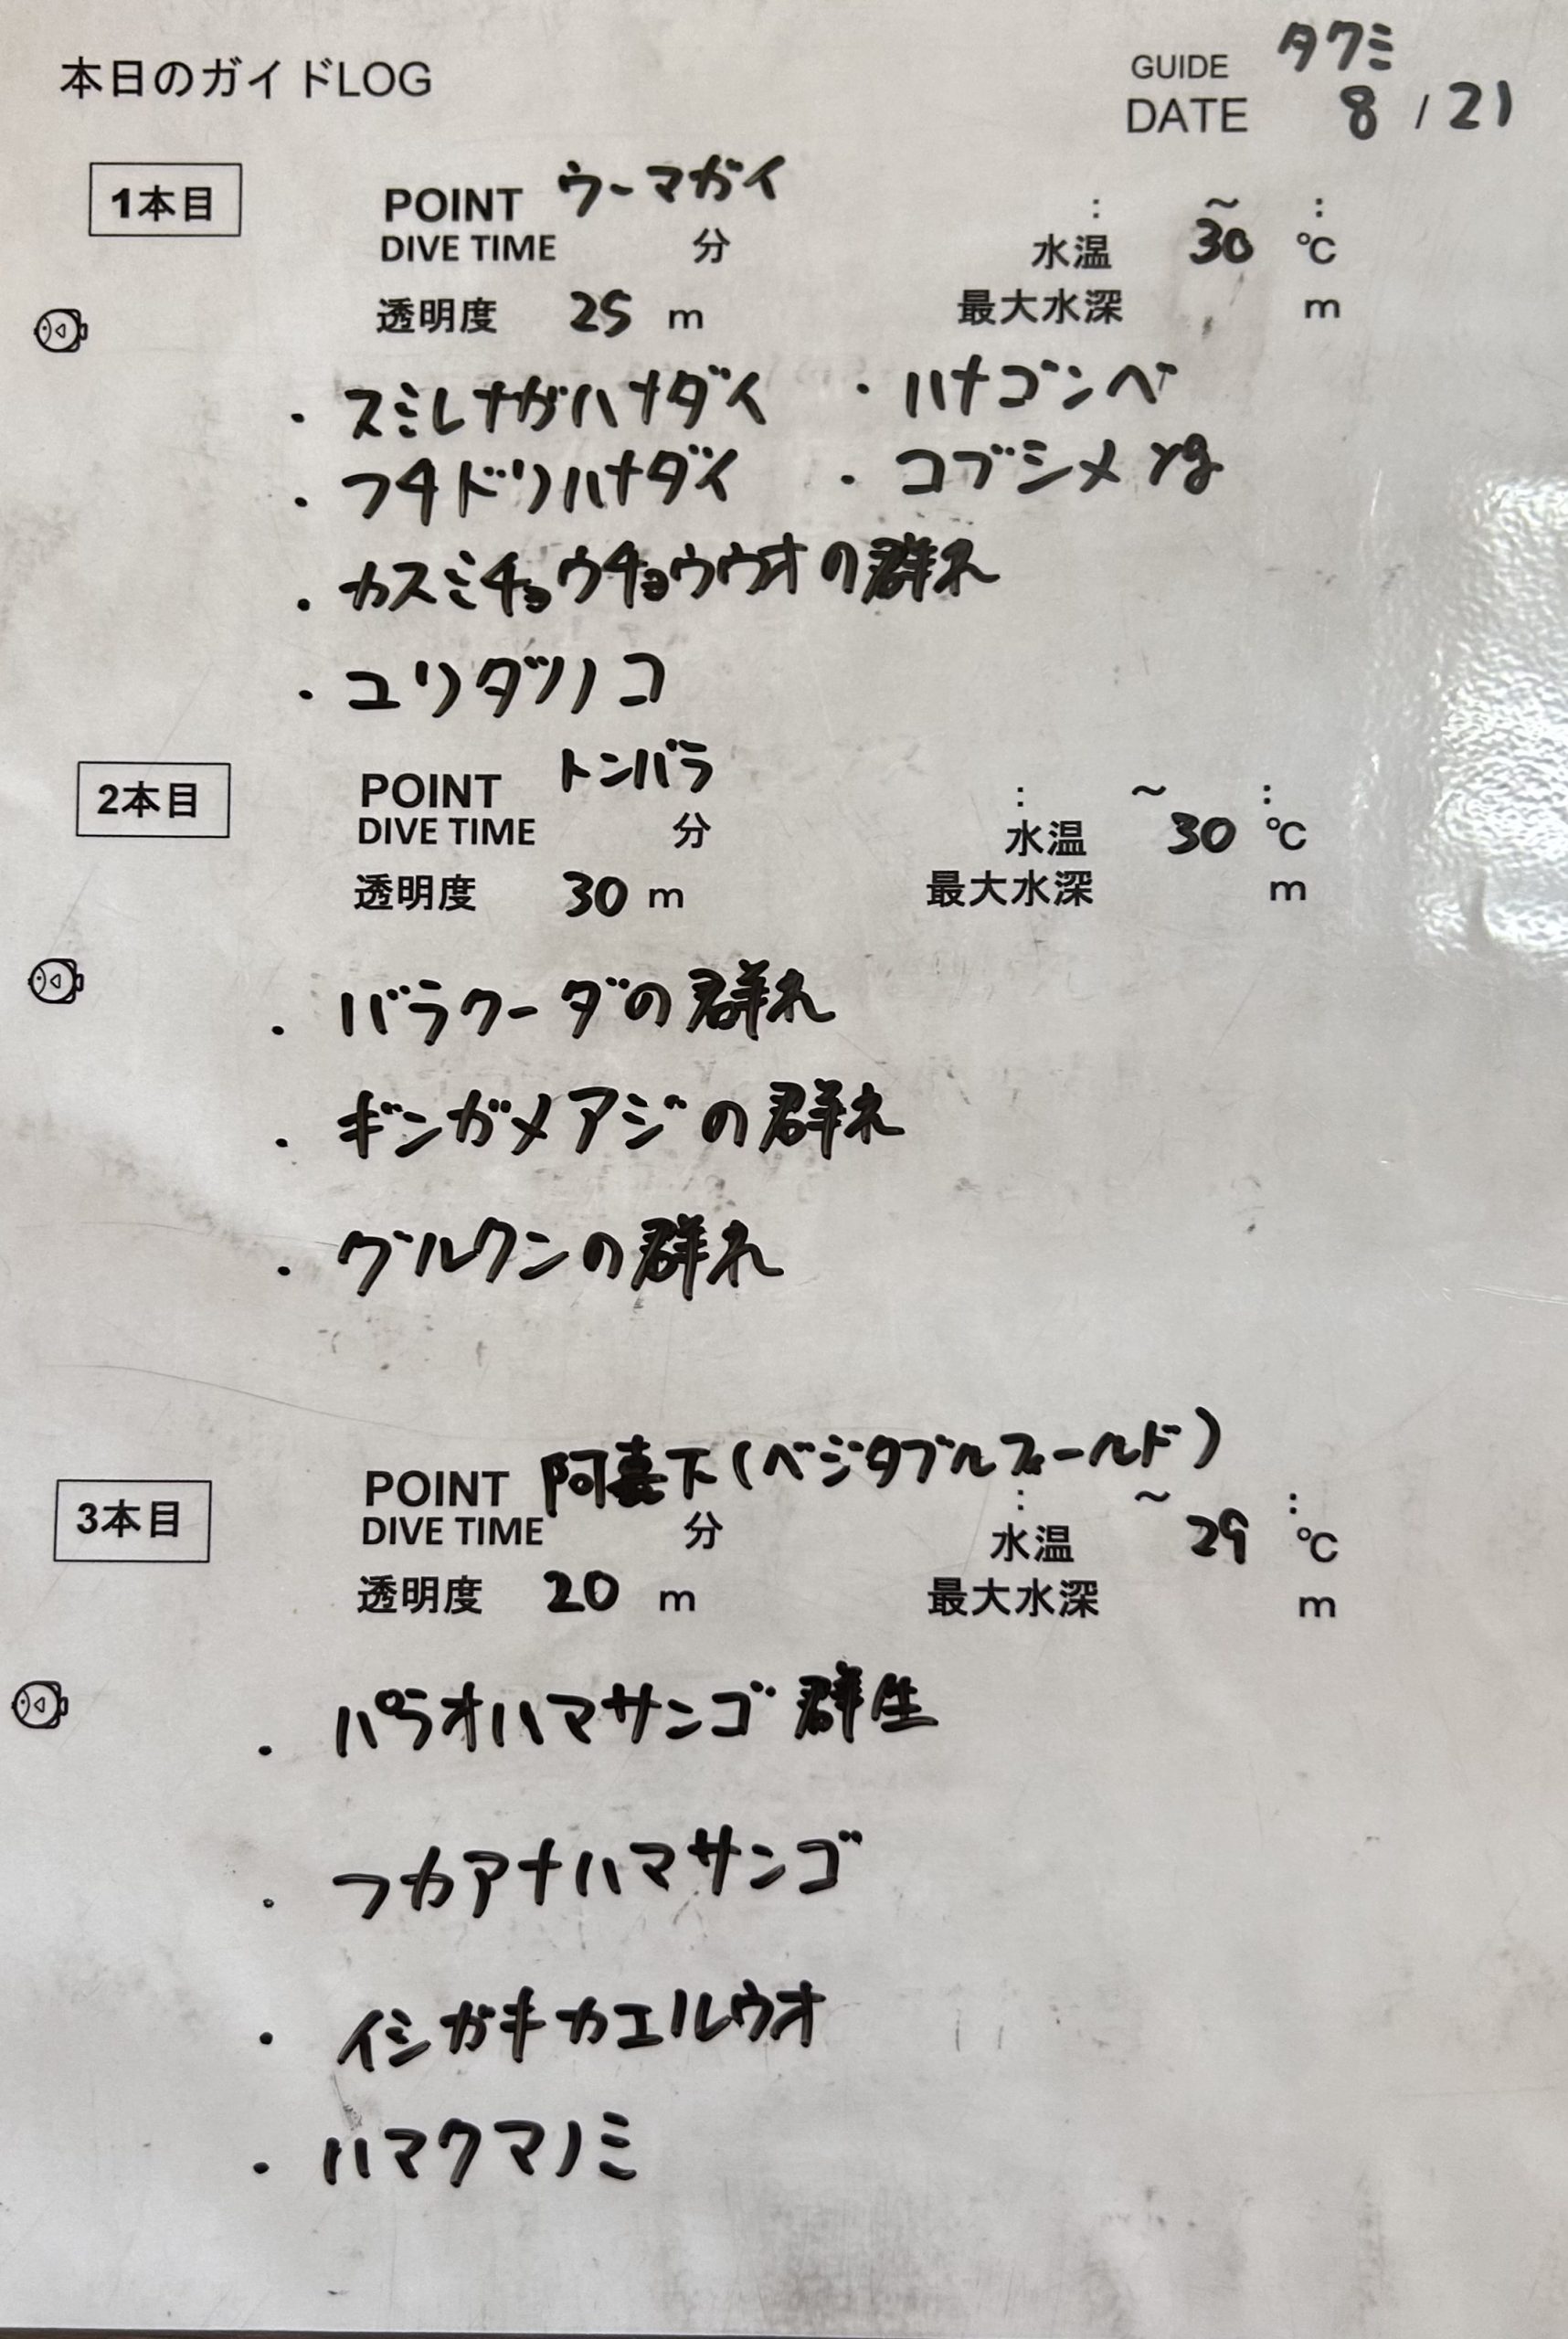 本日のガイドLOG
GUIDE タクミ
DATE 8 / 21
1本目
POINT ウーマガイ : ～ :
DIVE TIME 分 水温 30 ℃
透明度 25 m 最大水深 m
・スミレナガハナダイ ・ハナゴンベ
・フチドリハナダイ ・コブシメ yg
・カスミチョウチョウウオの群れ
・ユリタツノコ
2本目
POINT トンバラ : ～ :
DIVE TIME 分 水温 30 ℃
透明度 30 m 最大水深 m
・バラクーダの群れ
・ギンガメアジの群れ
・グルクンの群れ
3本目
POINT 阿嘉下(ベジタブルフィールド) : ～ :
DIVE TIME 分 水温 29 ℃
透明度 20 m 最大水深 m
・パラオハマサンゴ 群生
・フカアナハマサンゴ
・イシガキカエルウオ
・ハマクマノミ